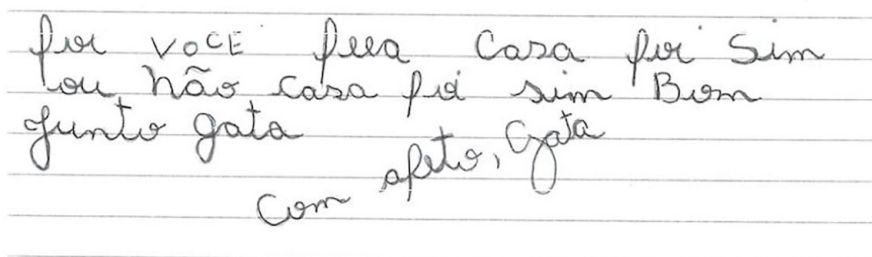 foi VOCE fua Casa foi Sim
ou não casa foi sim Bom
junto gata
Com afeto, Gata